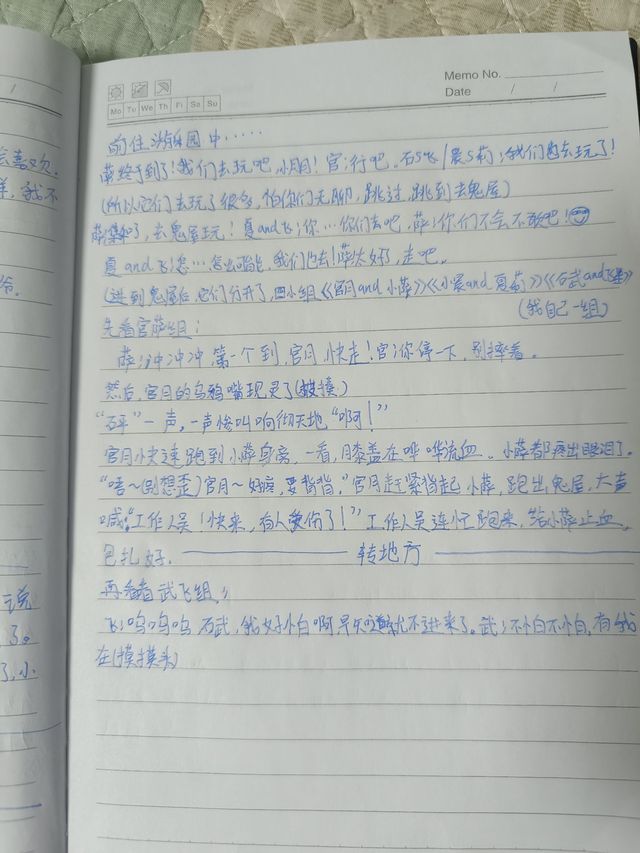 Memo No.
Date / /
Mo Tu We Th Fr Sa Su
前往游乐园中……
萨:终于到了!我们去玩吧,小月!宫:行吧。石5飞/晨5莉:我们也去玩了!
(所以它们去玩了很多,怕你们无聊,跳过,跳到去鬼屋)
萨:集和了,去鬼屋玩!夏and飞:你…你们去吧,萨:你们不会不敢吧!
夏and飞:怎…怎么可能,我们也去!萨:太好了,走吧。
(进到鬼屋后,它们分开了,四小组《宫月and小萨》《小晨and夏莉》《石武and飞》
(我自己一组)
先看宫萨组:
萨:冲冲冲,第一个到,宫月,快走!宫:你停一下,别摔着。
然后,宫月的乌鸦嘴现灵了(被揍)
“砰”一声,一声惨叫响彻天地“啊!”
宫月快速跑到小萨身旁,一看,膝盖在哗哗流血。小萨都疼出眼泪了。
“唔~(别想歪)宫月~好疼,要背背。”宫月赶紧背起小萨,跑出鬼屋,大声
喊:“工作人员!快来,有人受伤了!”工作人员连忙跑来,给小萨止血,
包扎好. ——— 转地方 ———
再看看武飞组:
飞:呜呜呜,石武,我好怕啊,早知道就不进来了。武:不怕不怕,有我
在(摸摸头)
喜欢.
我不
令.
说
了。
了,小